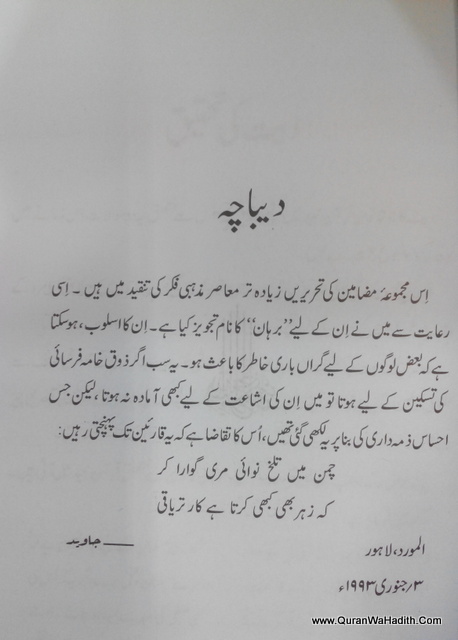 دیباچہ
اِس مجموعۂ مضامین کی تحریریں زیادہ تر معاصر مذہبی فکر کی تنقید میں ہیں ۔ اِسی
رعایت سے میں نے اِن کے لیے ”برہان“ کا نام تجویز کیا ہے۔ اِن کا اسلوب، ہوسکتا
ہے کہ بعض لوگوں کے لیے گراں باریِ خاطر کا باعث ہو۔ یہ سب اگر ذوق خامہ فرسائی
کی تسکین کے لیے ہوتا تو میں اِن کی اشاعت کے لیے کبھی آمادہ نہ ہوتا، لیکن جس
احساس ذمہ داری کی بنا پر یہ لکھی گئی تھیں، اُس کا تقاضا ہے کہ یہ قارئین تک پہنچتی رہیں:
چمن میں تلخ نوائی مری گوارا کر
کہ زہر بھی کبھی کرتا ہے کار تریاقی
المورد، لاہور ــــــ جاوید
۳؍جنوری ۱۹۹۳ء
www.QuranWaHadith.Com